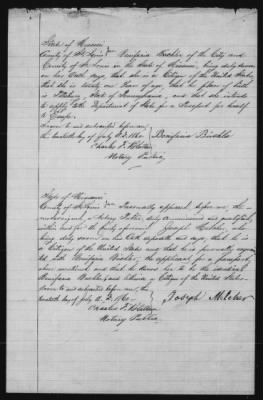 State of Missouri
County of St. Louis } Bonifacia Büchle of the City and
County of St. Louis in the State of Missouri, being duly sworn
on her Oath says, that she is a Citizen of the United States,
that she is twenty Years of age, that her place of birth
is State of Pennsylvania, and that she intends
to apply to the Department of State for a Passport for herself
to Europe.
Sworn to and subscribed before me
this twentieth day of July A.D. 1860 Bonifacia Büchle
Charles
Notary Public
State of Missouri
County of St. Louis } Personally appeared before me, the
undersigned, a Notary Public, duly commissioned and qualified,
within and for the County aforesaid Joseph
who
being duly sworn on his Oath deposeth and says, that he is
a Citizen of the United States and that he is personally acquain
ted with Bonifacia Büchle, the applicant for a passport,
above mentioned and that he knows her to be the identical
Bonifacia Büchle, and likewise a Citizen of the United States.
Sworn to and subscribed before me, this
twentieth day of July A.D. 1860 Joseph
Charles
Notary Public